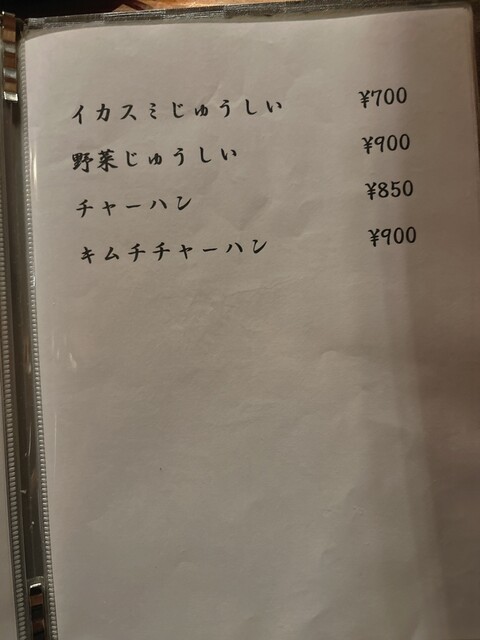 イカスミじゅうしい ¥700
野菜じゅうしい ¥900
チャーハン ¥850
キムチチャーハン ¥900